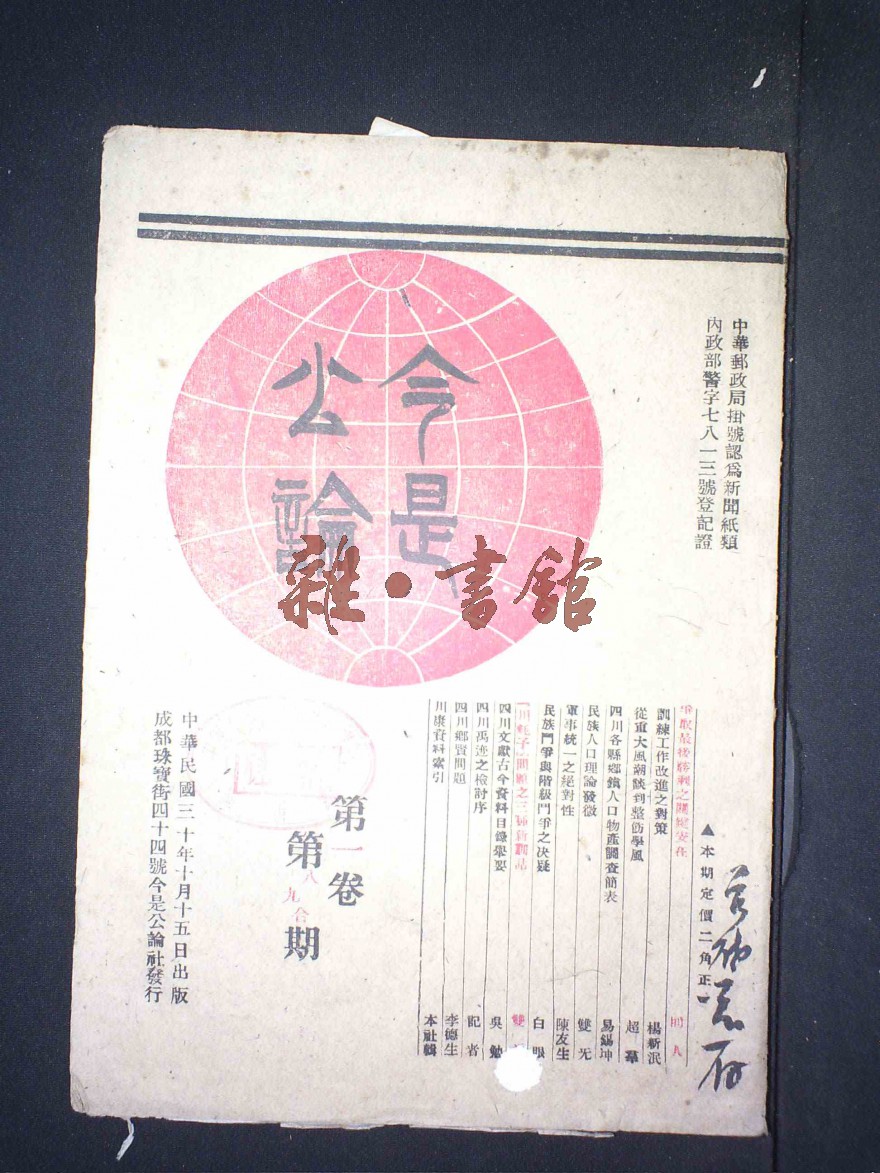 中華郵政局掛號認爲新聞紙類
內政部警字七八一三號登記證
今是
公論
雜·書館
▲本期定價二角正
爭取最後勝利之關鍵安在 同人
訓練工作改進之對策 楊新泯
從重大風潮談到整飭學風 超羣
四川各縣鄉鎮人口物產調查簡表 易錫坤
民族人口理論發微 雙无
軍事統一之絕對性 陳友生
民族鬥爭與階級鬥爭之決疑 白眼
「川耗子」問題之三 雙
四川文獻古今資料目錄舉要 吳勉
四川禹迹之檢討序 記者
四川鄉賢問題 李德生
川康資料索引 本社輯
第一卷
第八九合期
中華民國三十年十月十五日出版
成都珠寶街四十四號今是公論社發行